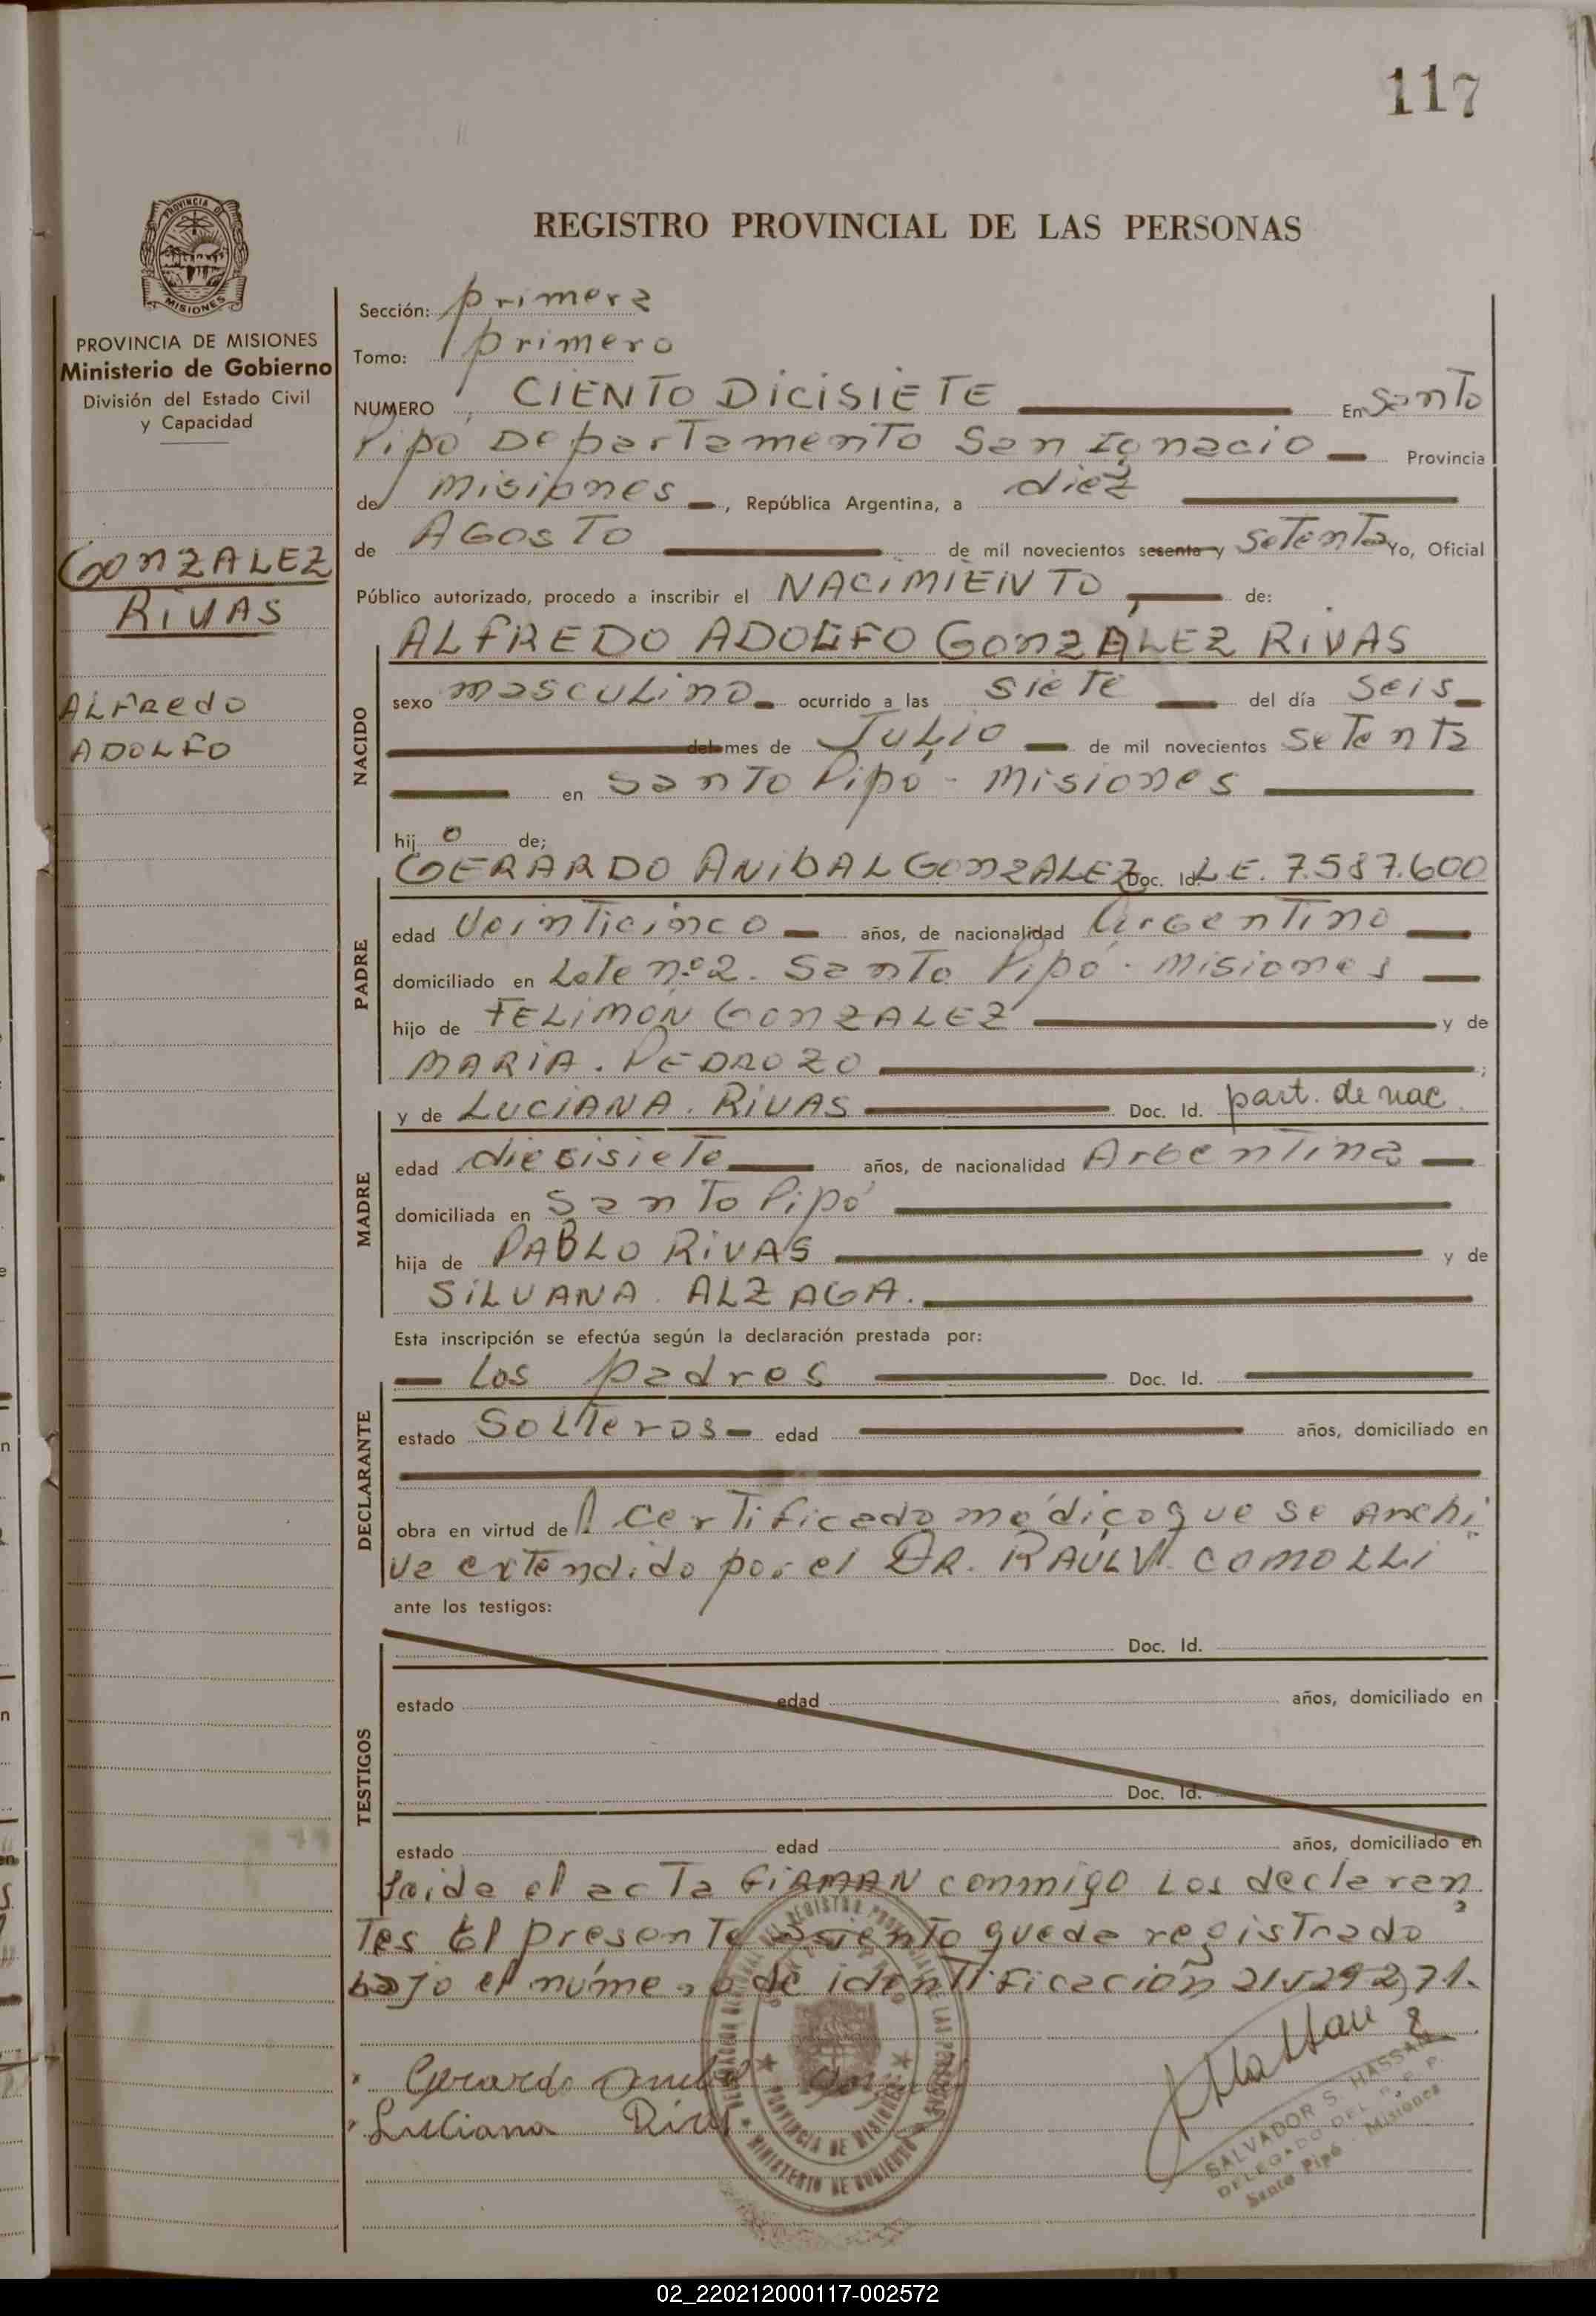 117
REGISTRO PROVINCIAL DE LAS PERSONAS
PROVINCIA DE
MISIONES
PROVINCIA DE MISIONES
Ministerio de Gobierno
División del Estado Civil
y Capacidad
GONZALEZ
RIVAS
ALFREDO
ADOLFO
Sección: primera
Tomo: primero
NUMERO CIENTO DICISIETE En Santo
Pipó Departamento San Ignacio Provincia
de Misiones, República Argentina, a diez
de AGOSTO de mil novecientos sesenta y Setenta Yo, Oficial
Público autorizado, procedo a inscribir el NACIMIENTO de:
NACIDO
ALFREDO ADOLFO GONZALEZ RIVAS
sexo masculino ocurrido a las siete del día seis
del mes de Julio de mil novecientos setenta
en Santo Pipó - Misiones
hijo de;
PADRE
GERARDO ANIBAL GONZALEZ Doc. Id. L.E. 7.587.600
edad veinticinco años, de nacionalidad Argentino
domiciliado en Lote nº 2. Santo Pipó - Misiones
hijo de FELIMÓN GONZALEZ y de
MARIA. PEDROZO;
MADRE
y de LUCIANA. RIVAS Doc. Id. part. de nac.
edad diesisiete años, de nacionalidad Argentina
domiciliada en Santo Pipó
hija de PABLO RIVAS y de
SILVANA. ALZAGA.
Esta inscripción se efectúa según la declaración prestada por:
DECLARANTE
Los padres Doc. Id.
estado Solteros edad años, domiciliado en
obra en virtud del certificado médico que se archi
va extendido por el DR. RAUL V. COMOLLI
ante los testigos:
TESTIGOS
Doc. Id.
estado edad años, domiciliado en
Doc. Id.
estado edad años, domiciliado en
Leida el acta FIRMAN conmigo Los declaran
tes El presente asiento queda registrado
bajo el número de identificación
Gerardo
Luciana
REGISTRO PROVINCIAL DE LAS PERSONAS
PROVINCIA DE MISIONES
MINISTERIO DE GOBIERNO
SALVADOR S. HASSAN
DELEGADO DEL R. P. P.
Santo Pipó - Misiones
02_220212000117-002572